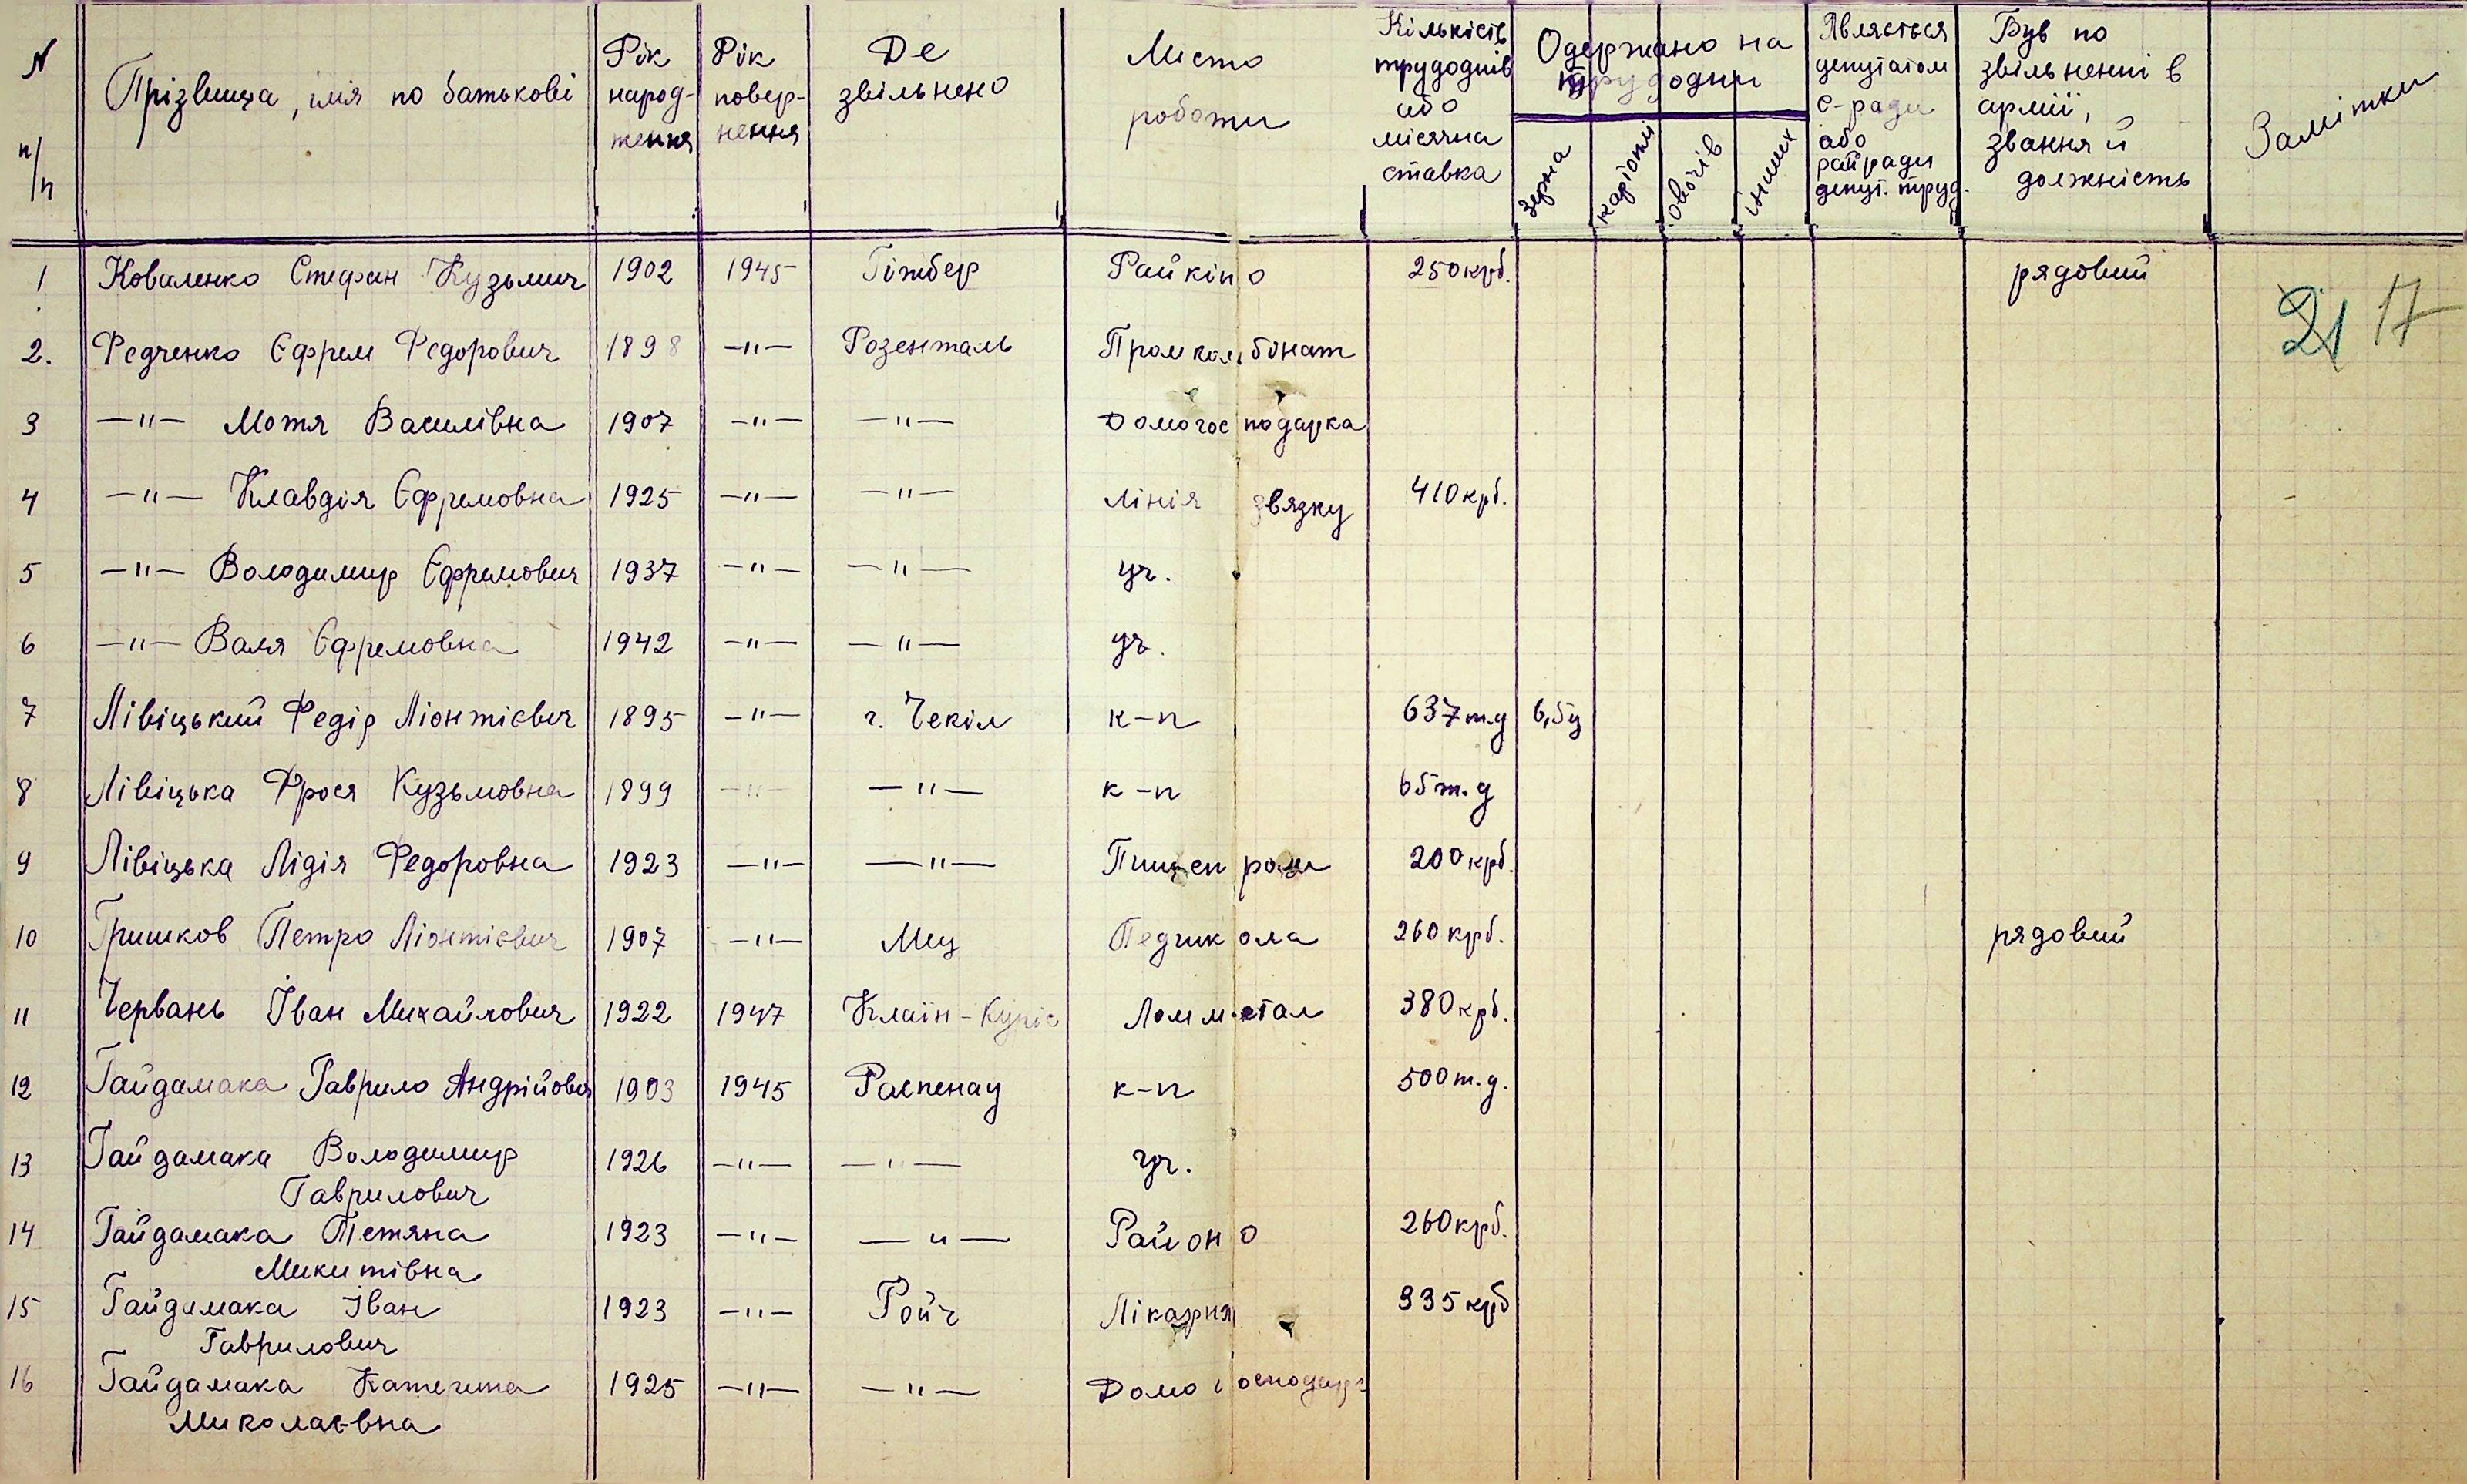 N п/п Прізвища, імя по батькові Рік народження Рік повернення Де звільнено Місто роботи Кількість трудоднів або місячна ставка Одержано на трудодни зерна картоплі овочів інших Являється депутатом с-ради або райради депут. труд. Був по звільненні в армії, звання й должність Замітки
1 Коваленко Стефан Кузьмич 1902 1945 Гіжбер Райкіно 250 крб. рядовий
21 17
2. Федченко Єфрем Федорович 1898 —"— Розенталь Промкомбінат
3 —"— Мотя Василівна 1907 —"— —"— Домогосподарка
4 —"— Клавдія Єфремовна 1925 —"— —"— лінія звязку 410 крб.
5 —"— Володимир Єфремович 1937 —"— —"— уч.
6 —"— Валя Єфремовна 1942 —"— —"— уч.
7 Лівіцький Федір Ліонтієвич 1895 —"— г. Чекіл к-п 637 т.д 6,5ц
8 Лівіцька Фрося Кузьмовна 1899 —"— —"— к-п 65 т.д
9 Лівіцька Лідія Федоровна 1923 —"— —"— Пищепром 200 крб.
10 Гришков Петро Ліонтієвич 1907 —"— Мец Педшкола 260 крб. рядовий
11 Червань Іван Михайлович 1922 1947 Клаїн-Куріс Ломметал 380 крб.
12 Гайдамака Гаврило Андрійович 1903 1945 Распенау к-п 500 т.д.
13 Гайдамака Володимир 1926 —"— —"— уч.
Гаврилович
14 Гайдамака Тетяна 1923 —"— —"— Районо 260 крб.
Микитівна
15 Гайдамака Іван 1923 —"— Ройч Лікарня 335 крб
Гаврилович
16 Гайдамака Катерина 1925 —"— —"— Домогосподарка
Миколаєвна